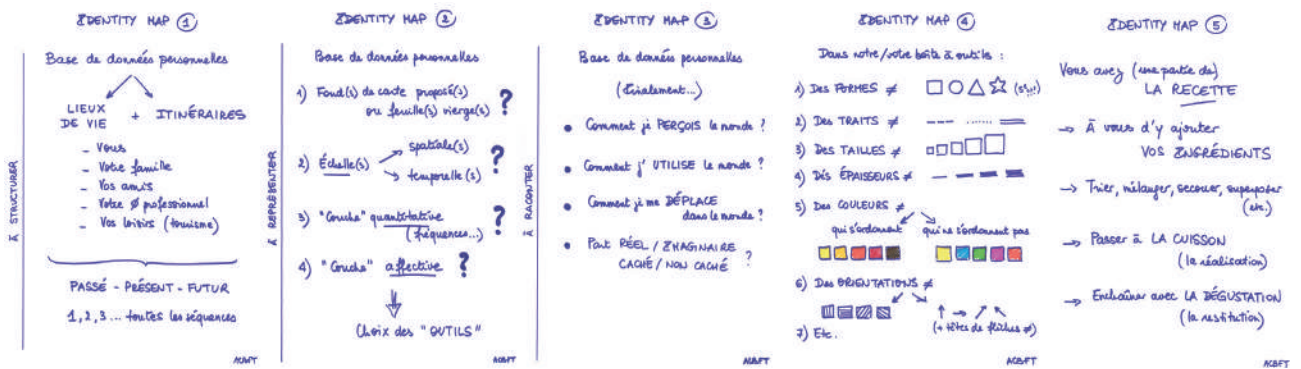 IDENTITY MAP 1
À STRUCTURER
Base de données personnelles
LIEUX DE VIE + ITINÉRAIRES
- Vous
- Votre famille
- Vos amis
- Votre Ø professionnel
- Vos loisirs (tourisme)
PASSÉ - PRÉSENT - FUTUR
1, 2, 3 ... toutes les séquences
ACBFT
IDENTITY MAP 2
À REPRÉSENTER
Base de données personnelles
1) Fond(s) de carte proposé(s)
ou feuille(s) vierge(s) ?
2) Échelle(s) ?
spatiale(s)
temporelle(s)
3) "Couche" quantitative ?
(fréquences...)
4) "Couche" affective ?
Choix des "OUTILS"
ACBFT
IDENTITY MAP 3
À RACONTER
Base de données personnelles
(Finalement...)
• Comment je PERÇOIS le monde ?
• Comment j'UTILISE le monde ?
• Comment je me DÉPLACE
dans le monde ?
• Part RÉEL / IMAGINAIRE
CACHÉ / NON CACHÉ ?
ACBFT
IDENTITY MAP 4
Dans notre/votre boîte à outils :
1) Des FORMES ≠
2) Des TRAITS ≠
3) Des TAILLES ≠
4) Des ÉPAISSEURS ≠
5) Des COULEURS ≠
qui s'ordonnent
qui ne s'ordonnent pas
6) Des ORIENTATIONS ≠
(+ têtes de flèches ≠)
7) Etc.
ACBFT
IDENTITY MAP 5
Vous avez (une partie de)
LA RECETTE
→ À vous d'y ajouter
VOS INGRÉDIENTS
→ Trier, mélanger, secouer, superposer
(etc.)
→ Passer à LA CUISSON
(la réalisation)
→ Enchaîner avec LA DÉGUSTATION
(la restitution)
ACBFT